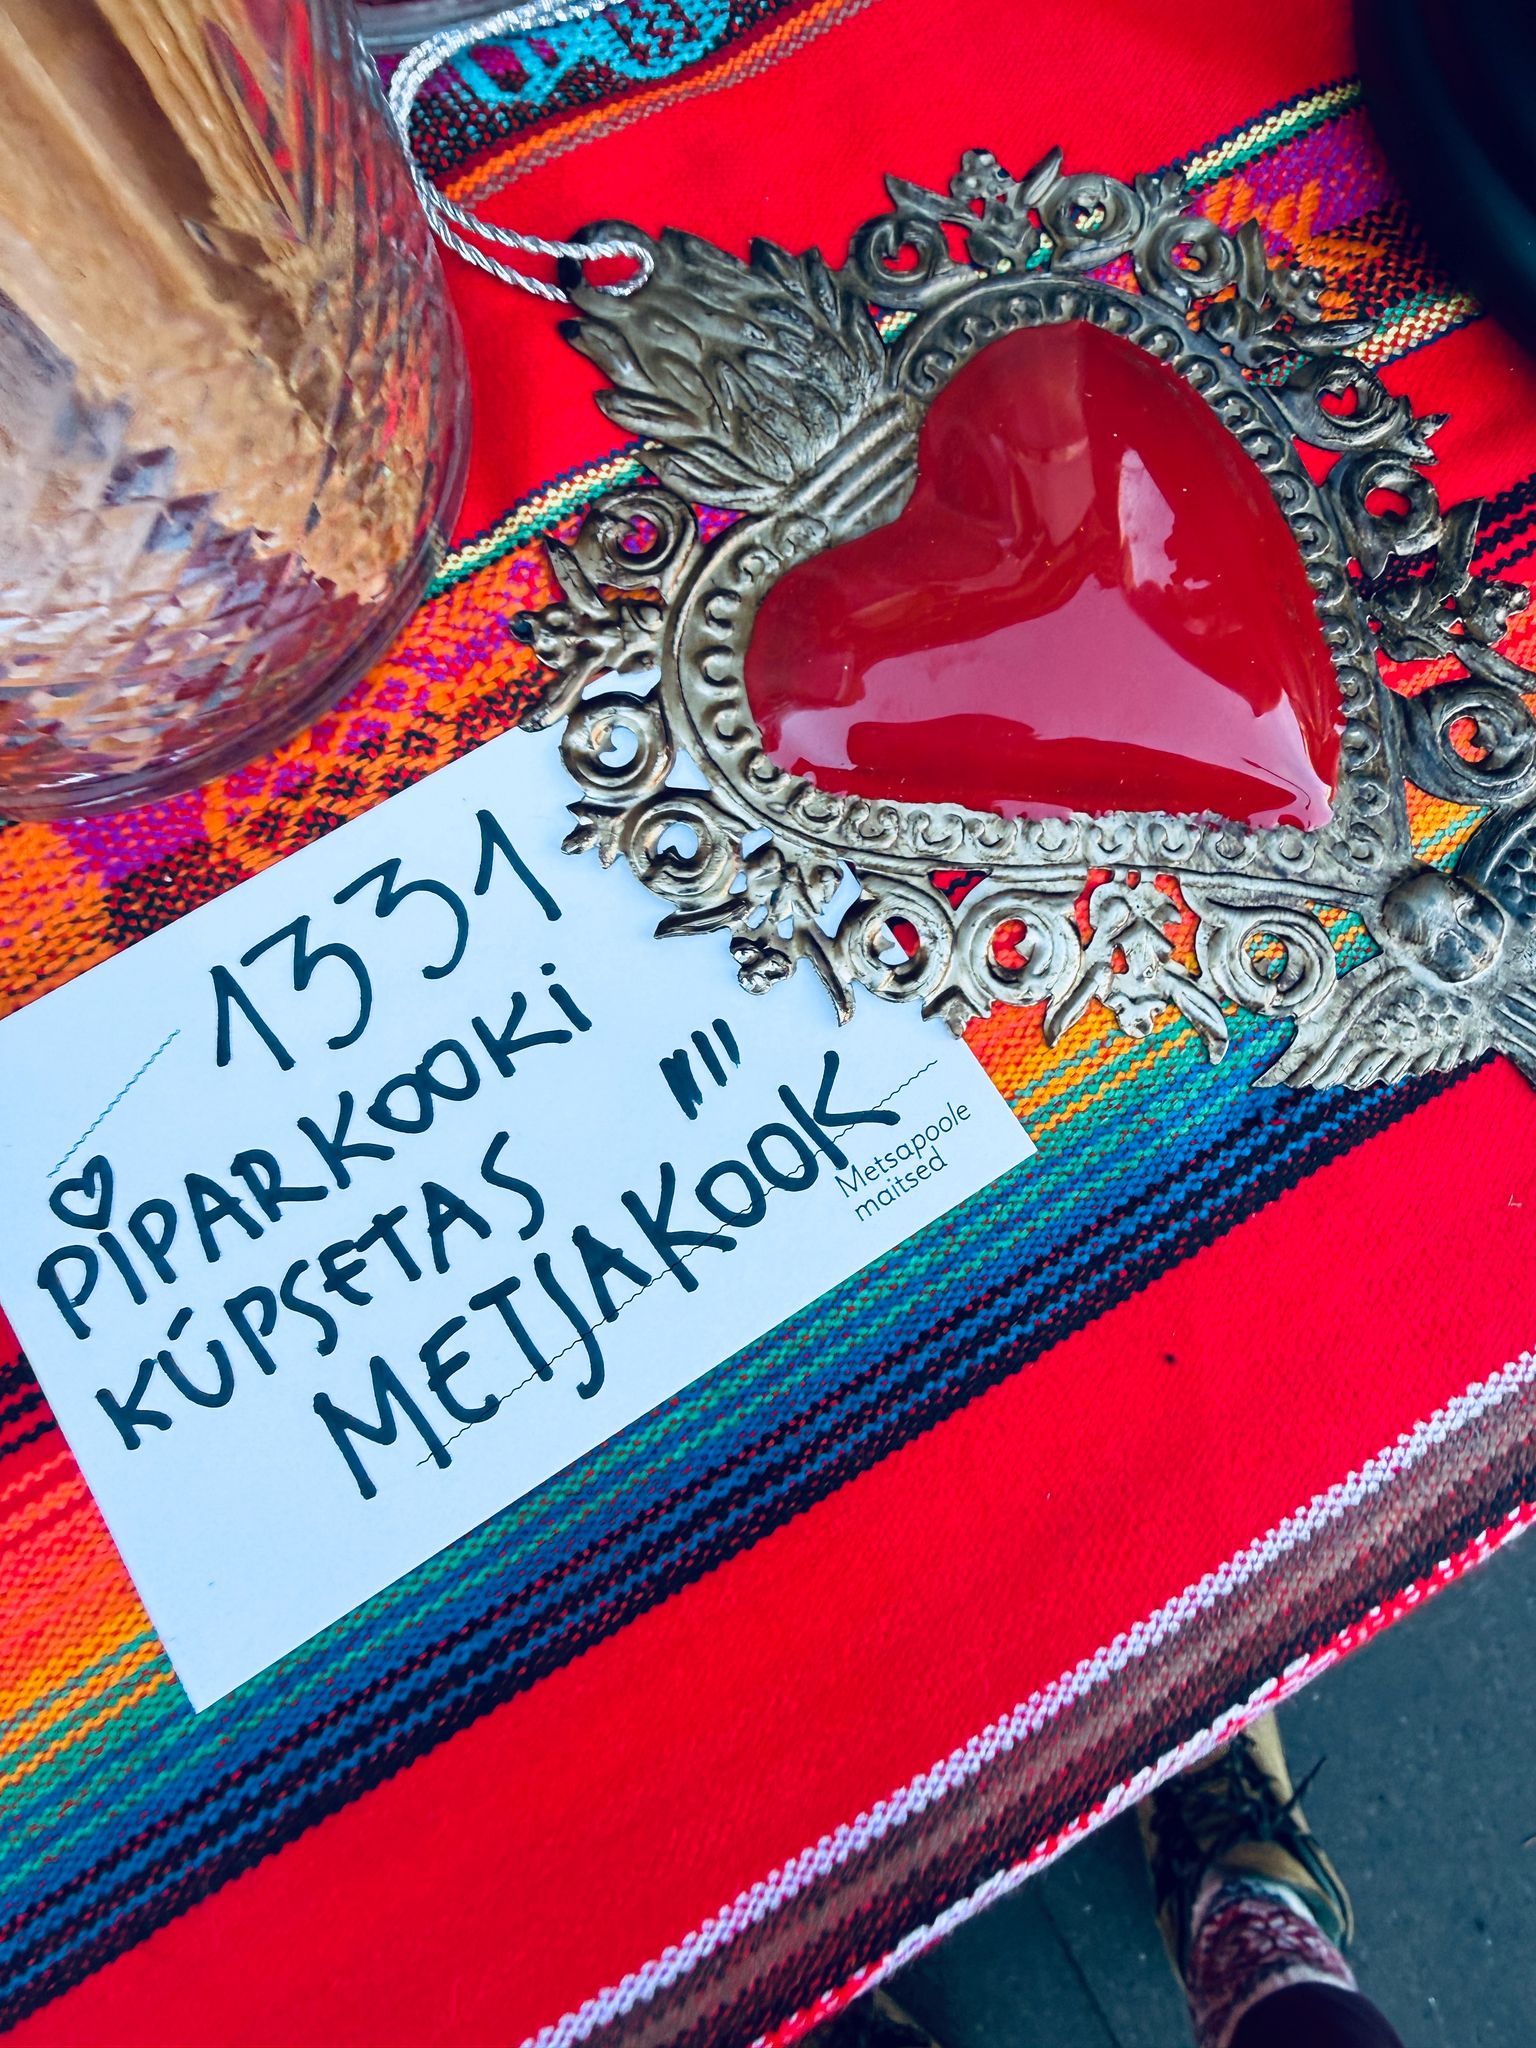 1331
PIPARKOOKI
KÜPSETAS
METSAKOOK
Metsapoole
maitsed